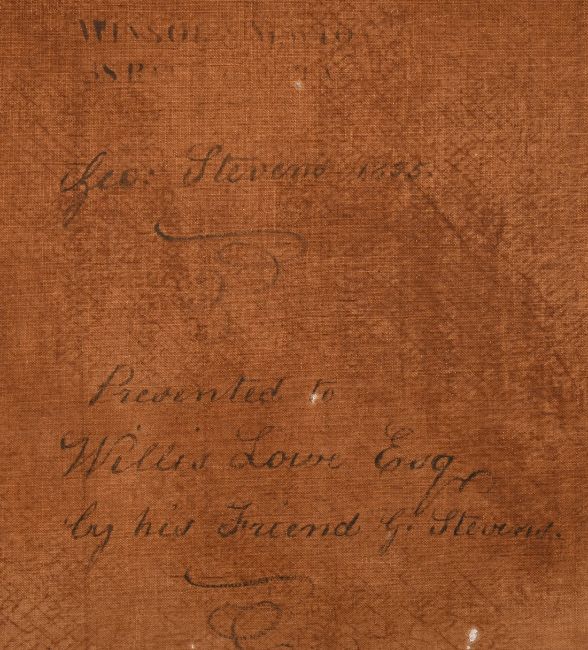 WINSOR & NEWTO
Geo: Stevens 1855.
Presented to
Willis Lowe Esq
by his Friend G. Stevens.